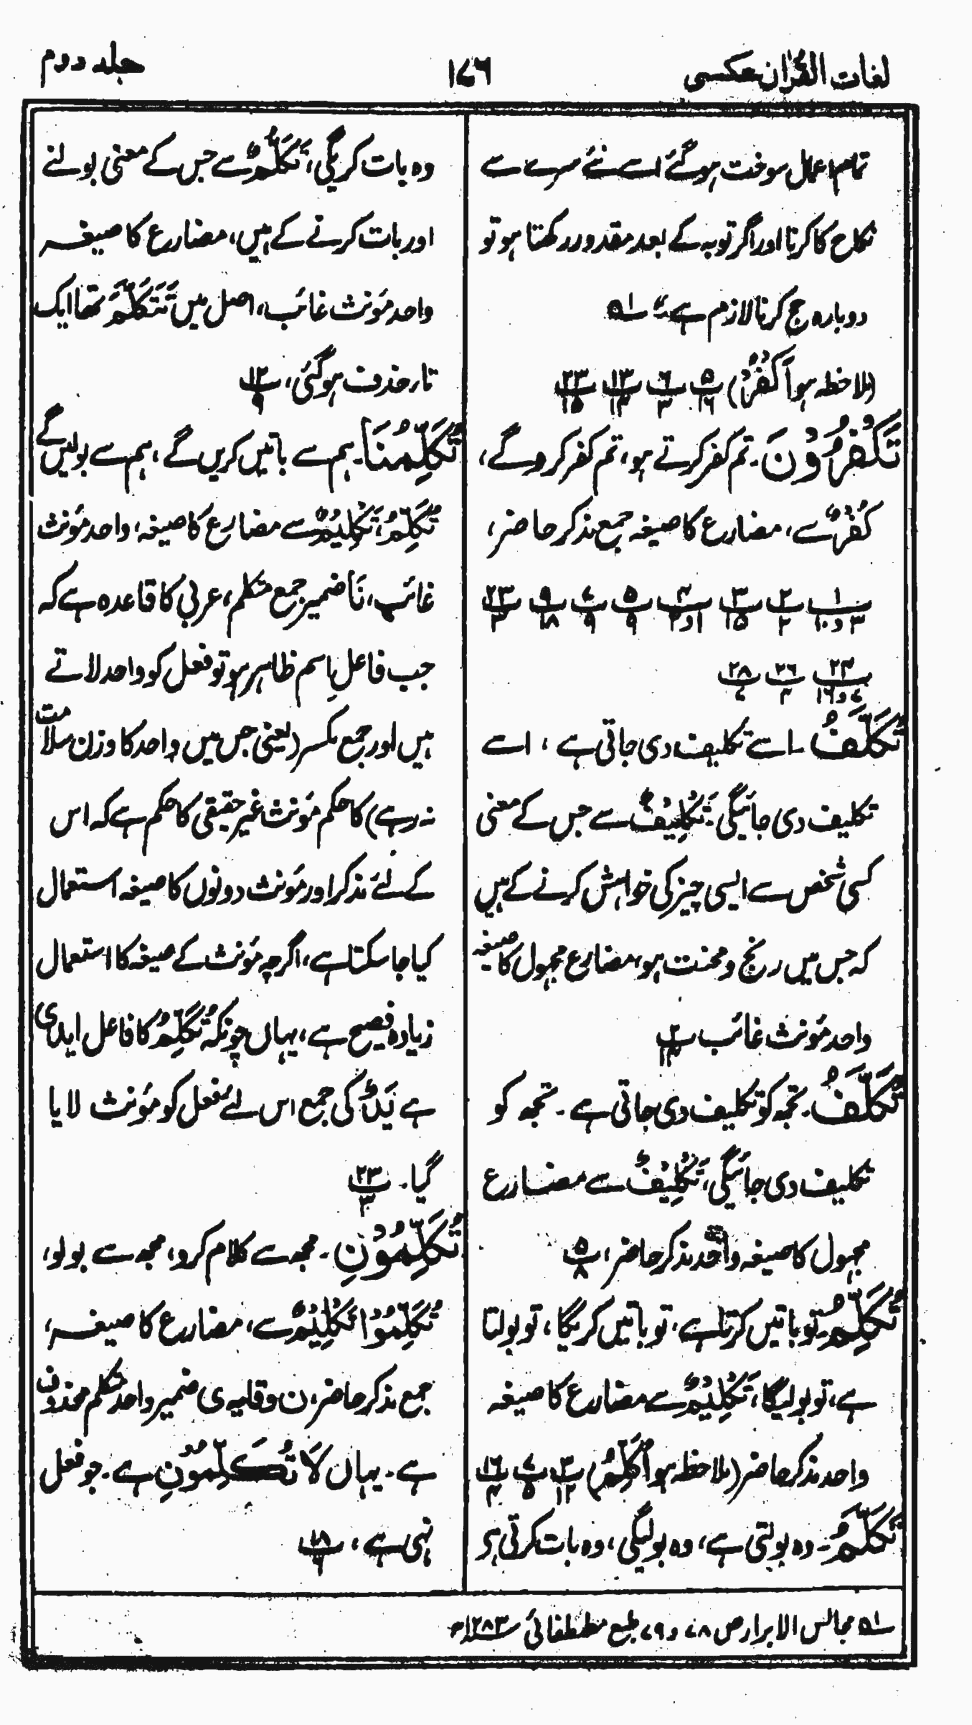 لغات القرآن عکسی
۱۷۶
جلد دوم
تمام اعمال سوخت ہو گئے اسے نئے سرے سے
نکاح کا کرنا اور اگر توبہ کے بعد مقدور رکھتا ہو تو
دوبارہ حج کرنا لازم ہے
(ملاحظہ ہو اَکْفُرُ) پ۵/۱۶ پ۶/۳ پ۱۳/۱۴ پ۲۳/۱۵
تَکْفُرُوْنَ۔ تم کفر کرتے ہو، تم کفر کرو گے،
کُفْرٌ سے، مضارع کا صیغہ جمع مذکر حاضر،
پ۱/۳و۱۰ پ۲/۲ پ۳/۱۵ پ۴/۱و۲ پ۵/۹ پ۷/۹ پ۹/۱۸ پ۲۳/۳
پ۲۴/۷و۱۶ پ۲۶/۴ پ۲۸/۷
تُکَلَّفُ۔ اسے تکلیف دی جاتی ہے، اسے
تکلیف دی جائیگی۔ تَکْلِیْفٌ سے جس کے معنی
کسی شخص سے ایسی چیز کی خواہش کرنے کے ہیں
کہ جس میں رنج و محنت ہو، مضارع مجہول کا صیغہ
واحد مؤنث غائب پ۲/۱۴
تُکَلَّفُ۔ تجھ کو تکلیف دی جاتی ہے۔ تجھ کو
تکلیف دی جائیگی، تَکْلِیْفٌ سے مضارع
مجہول کا صیغہ واحد مذکر حاضر، پ۵/۸
تُکَلِّمُ۔ تو باتیں کرتا ہے، تو باتیں کریگا، تو بولتا
ہے، تو بولیگا، تَکْلِیْمٌ سے مضارع کا صیغہ
واحد مذکر حاضر (ملاحظہ ہو اُکَلِّمُ) پ۳/۱۲ پ۷/۵ پ۱۶/۴
تَکَلَّمُ۔ وہ بولتی ہے، وہ بولیگی، وہ بات کرتی ہے
وہ بات کریگی، تَکَلُّمٌ سے جس کے معنی بولنے
اور بات کرنے کے ہیں، مضارع کا صیغہ
واحد مؤنث غائب، اصل میں تَتَکَلَّمُ تھا ایک
تار حذف ہو گئی، پ۱۲/۹
تُکَلِّمُنَا۔ ہم سے باتیں کریں گے، ہم سے بولیں گے
تُکَلِّمُ، تَکْلِیْمٌ سے مضارع کا صیغہ، واحد مؤنث
غائب، نَا ضمیر جمع متکلم، عربی کا قاعدہ ہے کہ
جب فاعل اسم ظاہر ہو تو فعل کو واحد لاتے
ہیں اور جمع مکسر (یعنی جس میں واحد کا وزن سلامت
نہ رہے) کا حکم مؤنث غیر حقیقی کا حکم ہے کہ اس
کے لئے مذکر اور مؤنث دونوں کا صیغہ استعمال
کیا جا سکتا ہے، اگرچہ مؤنث کے صیغہ کا استعمال
زیادہ فصیح ہے، یہاں چونکہ تُکَلِّمُ کا فاعل ایدی
ہے یَدٌ کی جمع اس لئے فعل کو مؤنث لایا
گیا۔ پ۲۳/۳
تُکَلِّمُوْنِ۔ مجھ سے کلام کرو، مجھ سے بولو،
تُکَلِّمُوْا تَکْلِیْمٌ سے، مضارع کا صیغہ،
جمع مذکر حاضر، ن وقایہ ی ضمیر واحد متکلم محذوف
ہے۔ یہاں لَا تُکَلِّمُوْنِ ہے۔ جو فعل
نہی ہے، پ۱۸/۶
۱ مجالس الابرار ص ۷۸ و ۷۹، طبع مصطفائی ۱۲۸۳ھ